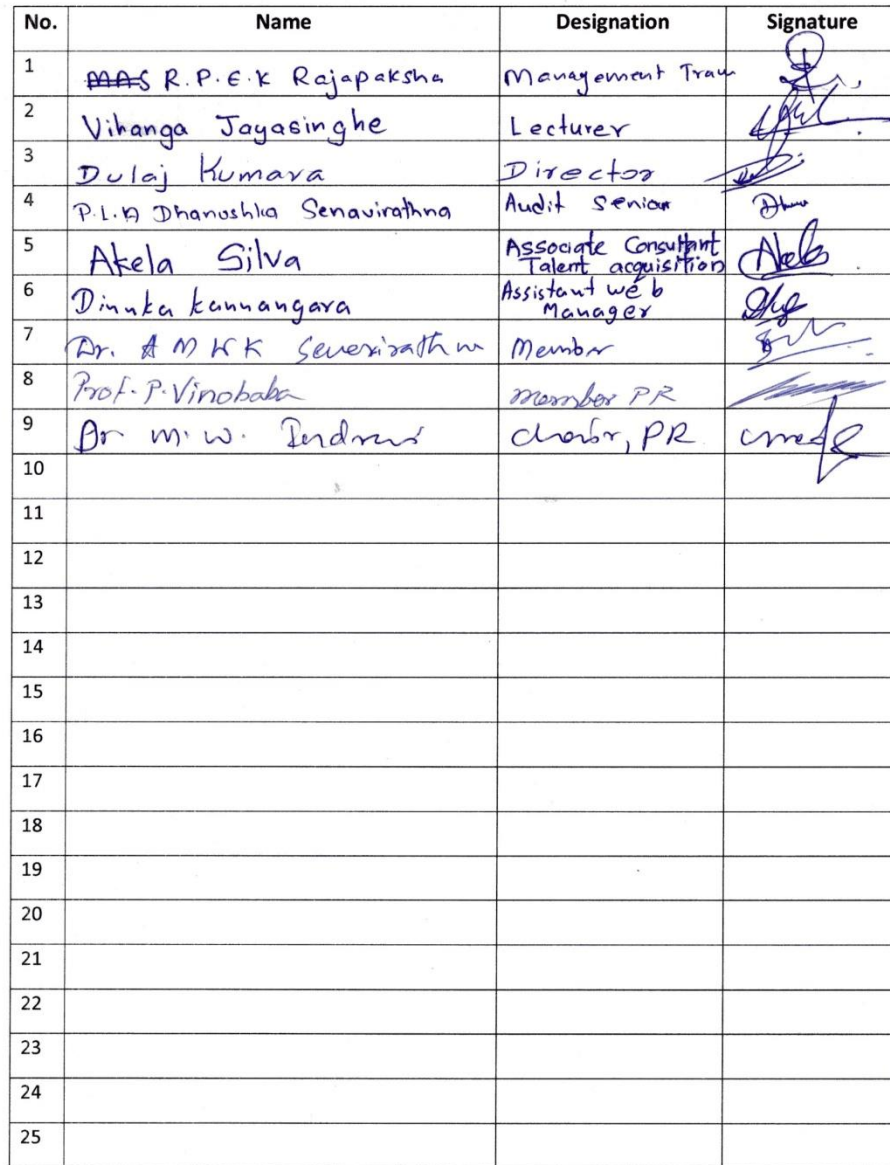 No. Name Designation Signature
1 MAS R.P.E.K Rajapaksha Management Train
2 Vihanga Jayasinghe Lecturer
3 Dulaj Kumara Director
4 P.L.A Dhanushka Senavirathna Audit Senior
5 Akela Silva Associate Consultant
Talent acquisition Akela
6 Dinuka Kannangara Assistant web
Manager
7 Dr. A M W K Senevirathna Member
8 Prof. P. Vinobaba member PR
9 Dr M. W. Indrani chair, PR
10
11
12
13
14
15
16
17
18
19
20
21
22
23
24
25